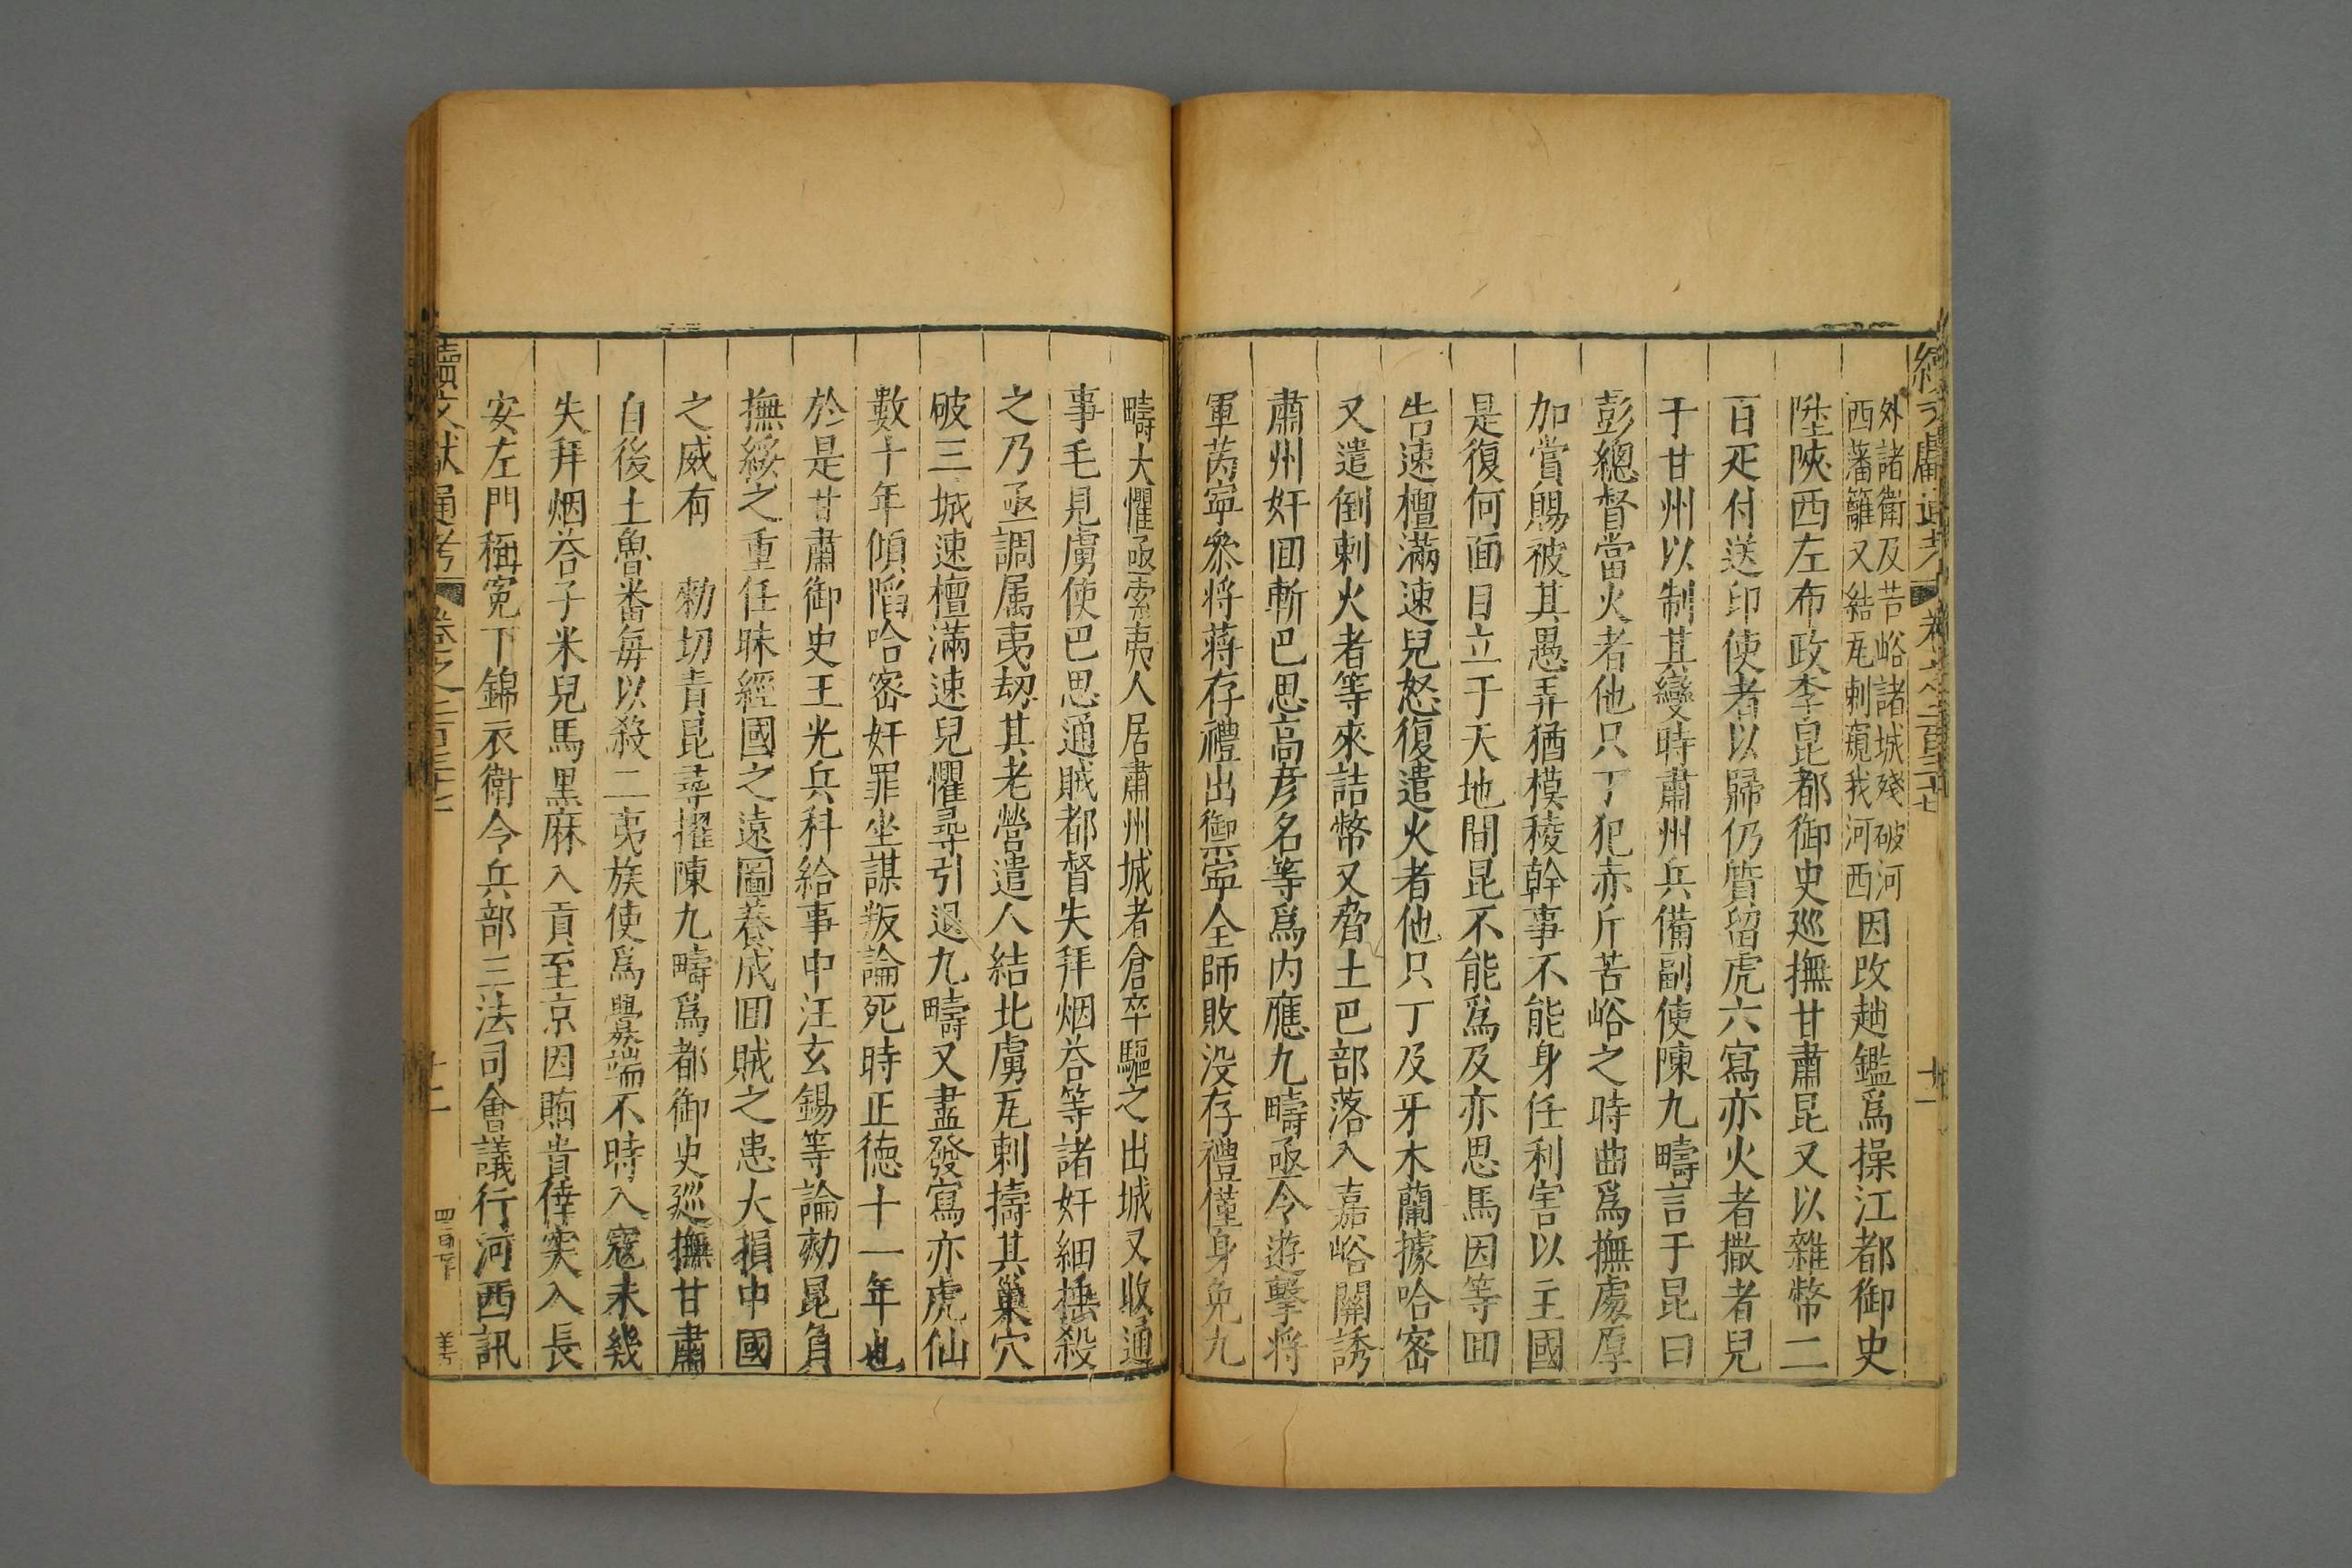 外諸衛及苦峪諸城殘破河
西藩籬又結瓦剌窺我河西
因改趙鑑爲操江都御史
陞陝西左布政李昆都御史巡撫甘肅昆又以雜幣二
百疋付送印使者以歸仍質留虎六寫亦火者撒者兒
于甘州以制其變時肅州兵備副使陳九疇言于昆曰
彭總督當火者他只丁犯赤斤苦峪之時曲爲撫處厚
加賞賜被其愚弄猶模稜幹事不能身任利害以主國
是復何面目立于天地間昆不能爲及亦思馬因等囬
告速檀滿速兒怒復遣火者他只丁及牙木蘭據哈密
又遣倒剌火者等來詰幣又脅土巴部落入嘉峪關誘
肅州奸囬斬巴思高彦名等爲内應九疇亟令遊擊將
軍芮寧叅将蒋存禮出禦寧全師敗没存禮僅身免九
疇大懼亟索夷人居肅州城者倉卒驅之出城又收通
事毛見虜使巴思通賊都督失拜烟荅等諸奸細捶殺
之乃亟調属夷刼其老營遣人結北虜瓦剌擣其巢穴
破三城速檀滿速兒懼尋引退九疇又盡發寫亦虎仙
數十年傾陷哈密奸罪坐謀叛論死時正德十一年也
於是甘肅御史王光兵科給事中汪玄錫等論劾昆負
撫綏之重任昧經國之遠圖養成囬賊之患大損中國
之威有　勑切責昆尋擢陳九疇爲都御史廵撫甘肅
自後土魯番毎以殺二夷族使爲釁端不時入寇未幾
失拜烟荅子米兒馬黑麻入貢至京因賄貴倖突入長
安左門稱寃下錦衣衛令兵部三法司會議行河西訊
續文獻通考
卷之二百三十七
十一